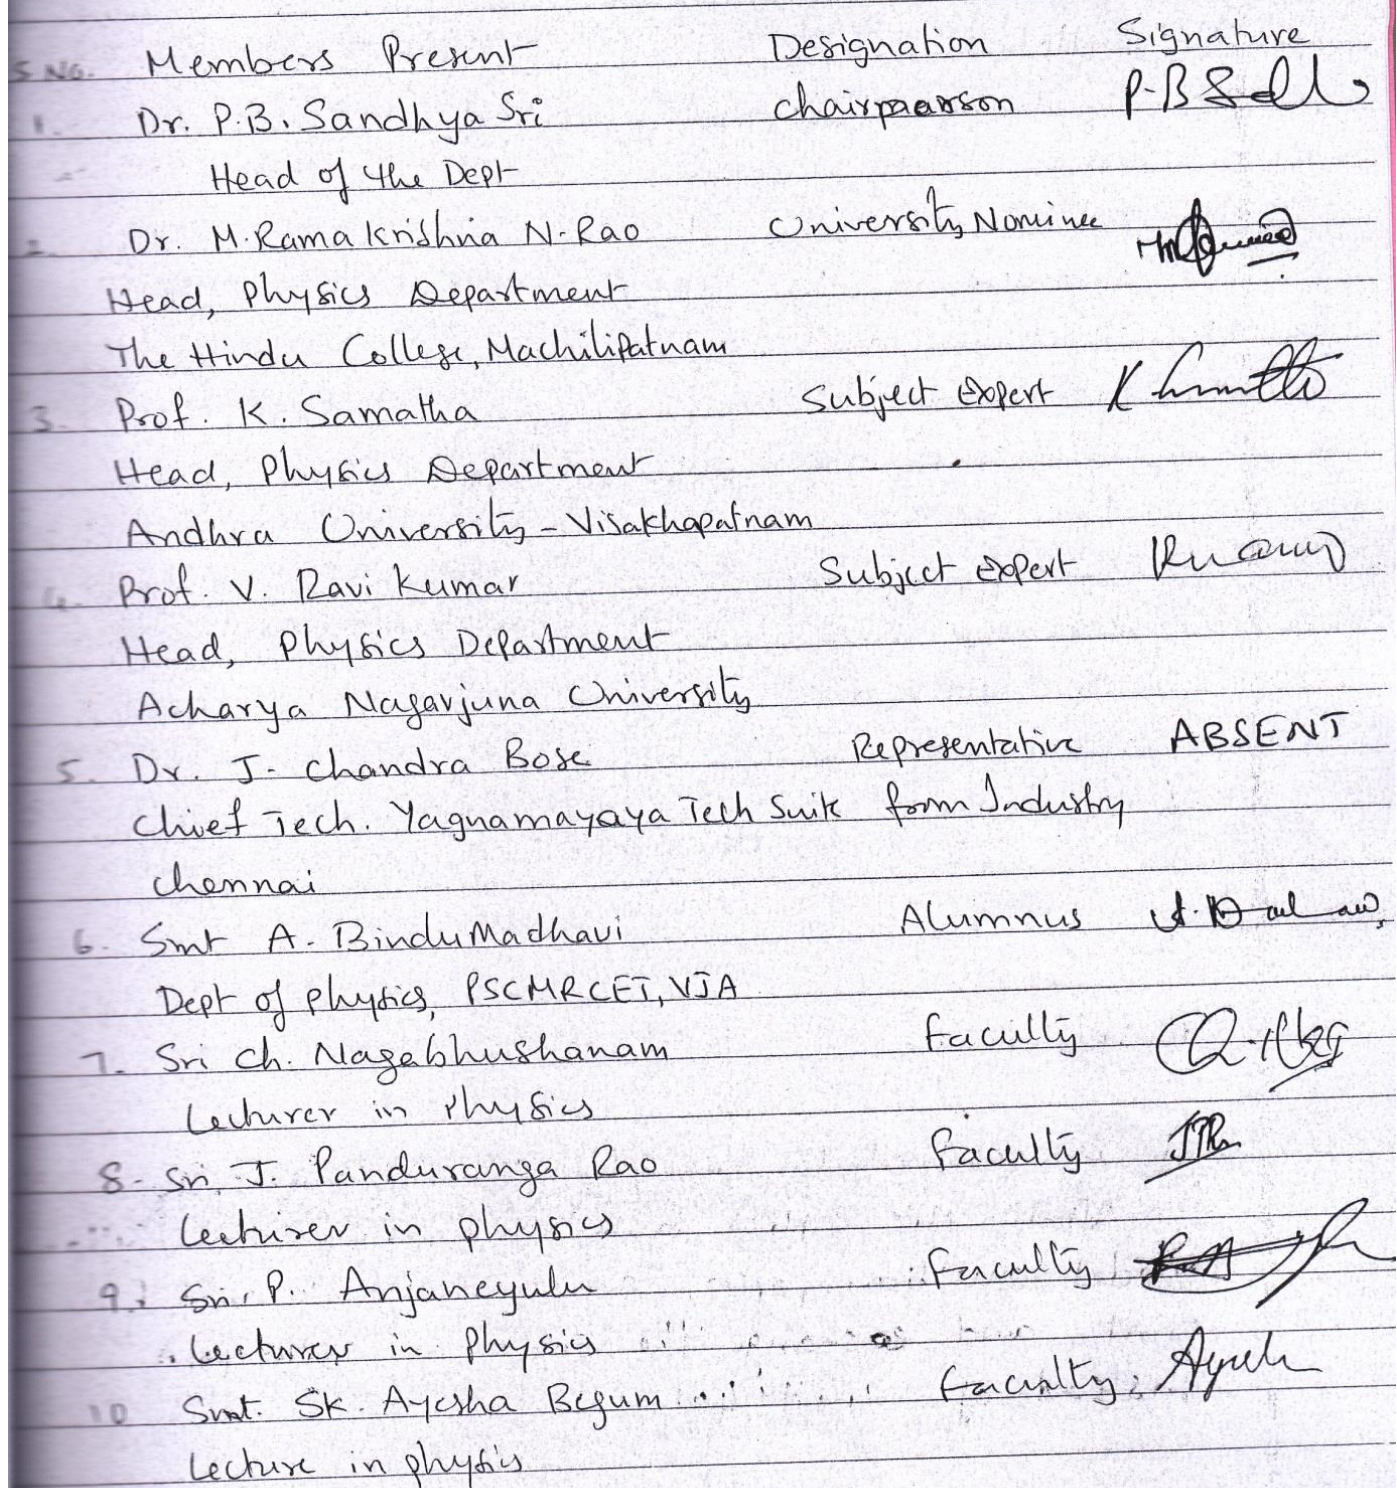 S No. Members Present Designation Signature
1. Dr. P.B. Sandhya Sri chairpaerson P.B S
Head of the Dept
2. Dr. M. Rama Krishna N. Rao University Nominee
Head, Physics Department
The Hindu College, Machilipatnam
3. Prof. K. Samatha Subject Expert K
Head, Physics Department
Andhra University - Visakhapatnam
4. Prof. V. Ravi Kumar Subject Expert
Head, Physics Department
Acharya Nagarjuna University
5. Dr. J. Chandra Bose Representative ABSENT
Chief Tech. Yagnamayaya Tech Suite from Industry
Chennai
6. Smt A. Bindu Madhavi Alumnus
Dept of physics, PSCMRCET, VJA
7. Sri Ch. Nagabhushanam Faculty
Lecturer in Physics
8. Sri. J. Panduranga Rao Faculty
Lecturer in physics
9. Sri. P. Anjaneyulu Faculty
Lecturer in Physics
10 Smt. Sk. Ayesha Begum Faculty
Lecture in physics